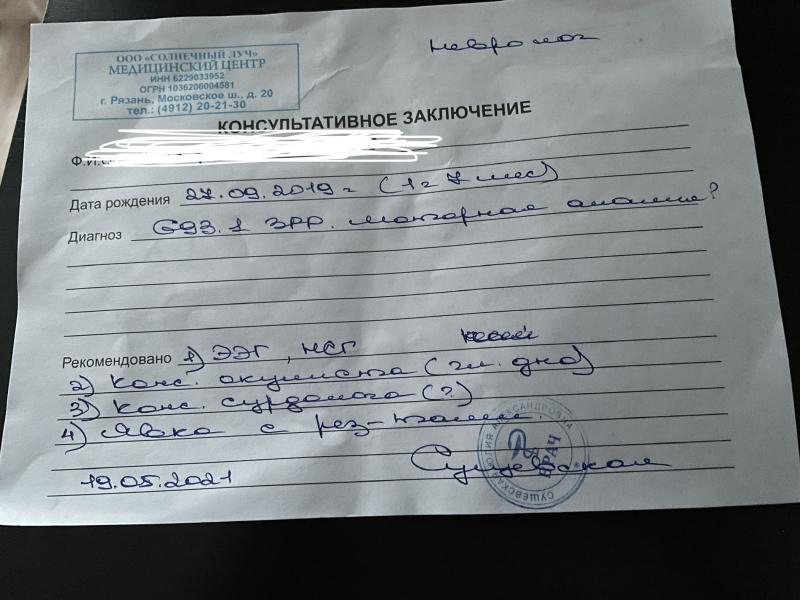 Невролог
ООО «СОЛНЕЧНЫЙ ЛУЧ»
МЕДИЦИНСКИЙ ЦЕНТР
ИНН 6229033952
ОГРН 1036206004581
г. Рязань, Московское ш., д. 20
тел.: (4912) 20-21-30
КОНСУЛЬТАТИВНОЕ ЗАКЛЮЧЕНИЕ
Ф.И.
Дата рождения 27.09.2019 г (1 г 7 мес)
Диагноз G93.1 ЗРР. Моторная алалия?
Рекомендовано 1) ЭЭГ, НСГ
2) Конс. окулиста (гл. дно)
3) Конс. сурдолога (?)
4) Явка с рез-тами.
19.05.2021 Сущевская
СУЩЕВСКАЯ ЮЛИЯ АЛЕКСАНДРОВНА
ВРАЧ